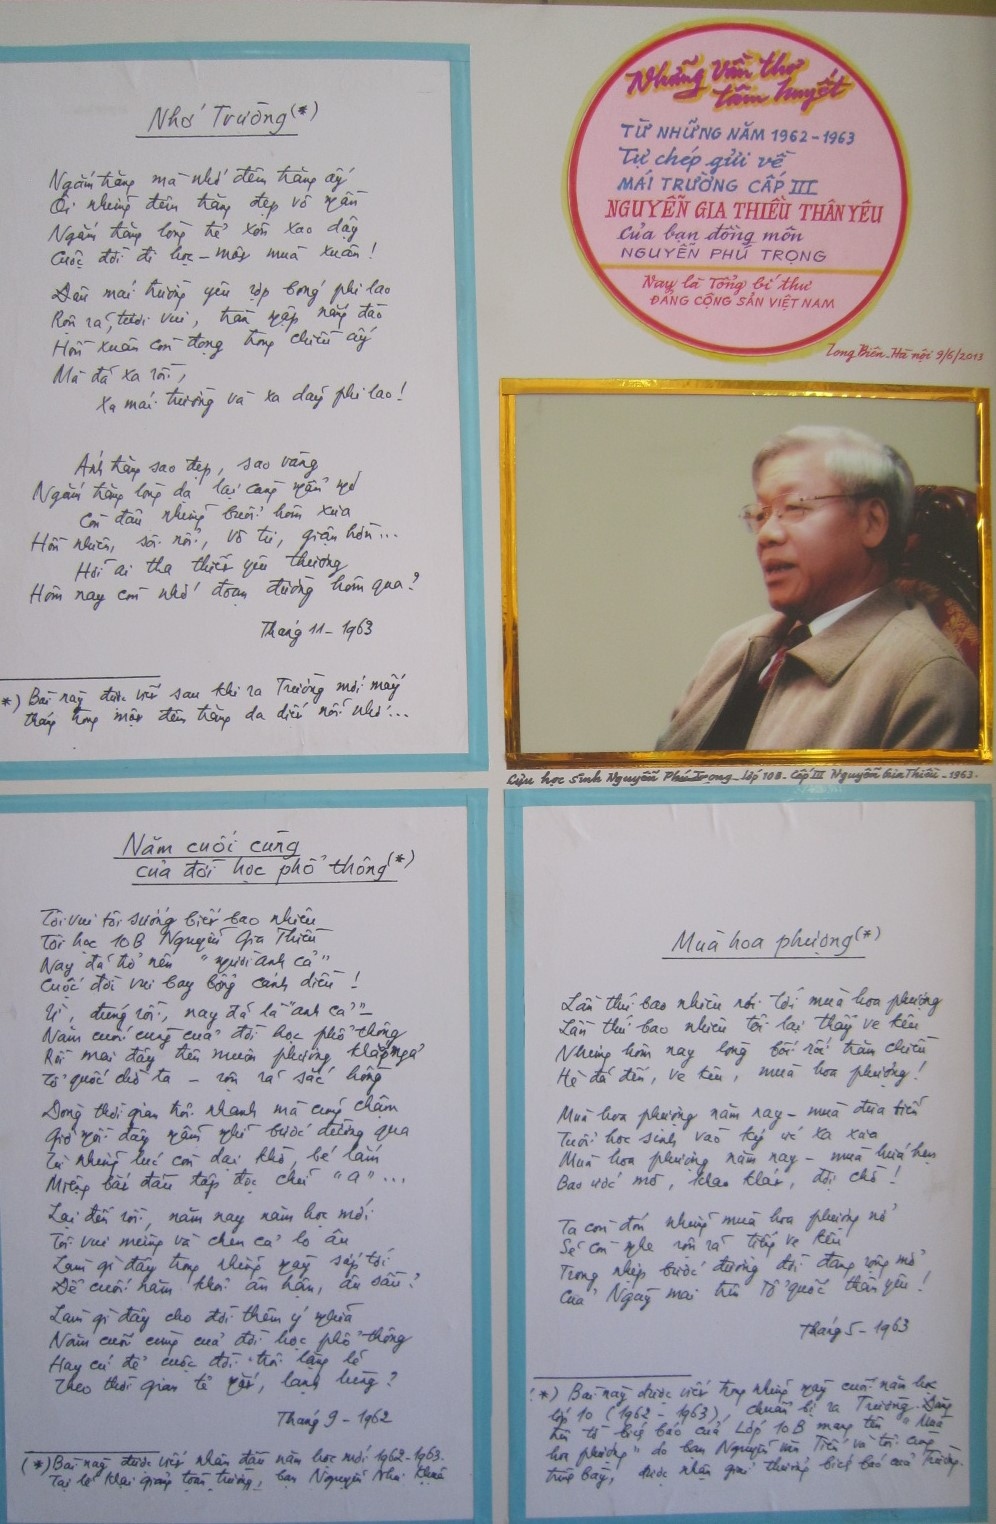 Nhớ Trường (*)
Ngắm trăng mà nhớ đêm trăng ấy
Ôi những đêm trăng đẹp vô ngần
Ngắm trăng lòng tẻ xốn xao dậy
Cuộc đời đi học - mấy mùa xuân!
Đâu mái trường yêu rợp bóng phi lao
Rộn rã, tươi vui, tràn ngập nắng đào
Hồn xuân còn đọng trong chiều ấy
Mà đã xa rồi,
Xa mái trường và xa dãy phi lao!
Ánh trăng sao đẹp, sao vàng
Ngắm trăng lòng dạ lại càng ngẩn ngơ
Còn đâu những buổi hôm xưa
Hồn nhiên, sôi nổi, vô tư, giận hờn...
Hỏi ai tha thiết yêu thương
Hôm nay còn nhớ đoạn đường hôm qua?
Tháng 11 - 1963
*) Bài này được viết sau khi ra Trường mới mấy
tháng trong một đêm trăng da diết nỗi nhớ...
Những vần thơ
tâm huyết
TỪ NHỮNG NĂM 1962-1963
Tự chép gửi về
MÁI TRƯỜNG CẤP III
NGUYỄN GIA THIỀU THÂN YÊU
Của bạn đồng môn
NGUYỄN PHÚ TRỌNG
Nay là Tổng bí thư
ĐẢNG CỘNG SẢN VIỆT NAM
Long Biên - Hà nội 9/6/2013
Cựu học sinh Nguyễn Phú Trọng - Lớp 10B - Cấp III Nguyễn Gia Thiều - 1963.
Năm cuối cùng
của đời học phổ thông (*)
Tôi vui tôi sướng biết bao nhiêu
Tôi học 10B Nguyễn Gia Thiều
Nay đã trở nên "người anh cả"
Cuộc đời vui bay bổng cánh diều!
Ừ, đúng rồi, nay đã là "anh cả" -
Năm cuối cùng của đời học phổ thông
Rồi mai đây trên muôn phương khắp ngả
Tổ quốc chờ ta - rộn rã sắc hồng
Dòng thời gian trôi nhanh mà cũng chậm
Giờ ngồi đây ngẫm nghĩ bước đường qua
Từ những lúc còn dại khờ, bé lắm
Miệng bắt đầu tập đọc chữ "a"...
Lại đến rồi, năm nay năm học mới
Tôi vui mừng và chen cả lo âu
Làm gì đây trong những ngày sắp tới
Để cuối năm khỏi ân hận, âu sầu?
Làm gì đây cho đời thêm ý nghĩa
Năm cuối cùng của đời học phổ thông
Hay cứ để cuộc đời trôi lặng lẽ
Theo thời gian tẻ ngắt, lạnh lùng?
Tháng 9 - 1962
(*) Bài này được viết nhân đầu năm học mới 1962-1963.
Tại lễ khai giảng toàn trường, bạn Nguyễn Như
Mùa hoa phượng (*)
Lần thứ bao nhiêu nói tới mùa hoa phượng
Lần thứ bao nhiêu tôi lại thấy ve kêu
Nhưng hôm nay lòng bối rối trăm chiều
Hè đã đến, ve kêu, mùa hoa phượng!
Mùa hoa phượng năm nay - mùa đưa tiễn
Tuổi học sinh vào ký ức xa xưa
Mùa hoa phượng năm nay - mùa hứa hẹn
Bao ước mơ, khao khát, đợi chờ!
Ta còn đón những mùa hoa phượng nở
Sẽ còn nghe rộn rã tiếng ve kêu
Trong nhịp bước đường đời đang rộng mở
Của Ngày mai trên Tổ quốc thân yêu!
Tháng 5 - 1963
(*) Bài này được viết trong những ngày cuối năm học
lớp 10 (1962 - 1963), chuẩn bị ra Trường. Dùng
tên tờ bích báo của Lớp 10B mang tên "Mùa
hoa phượng" do bạn Nguyễn Văn Tiến và tôi cùng
trưng bày, được nhận giải thưởng bích báo của Trường.